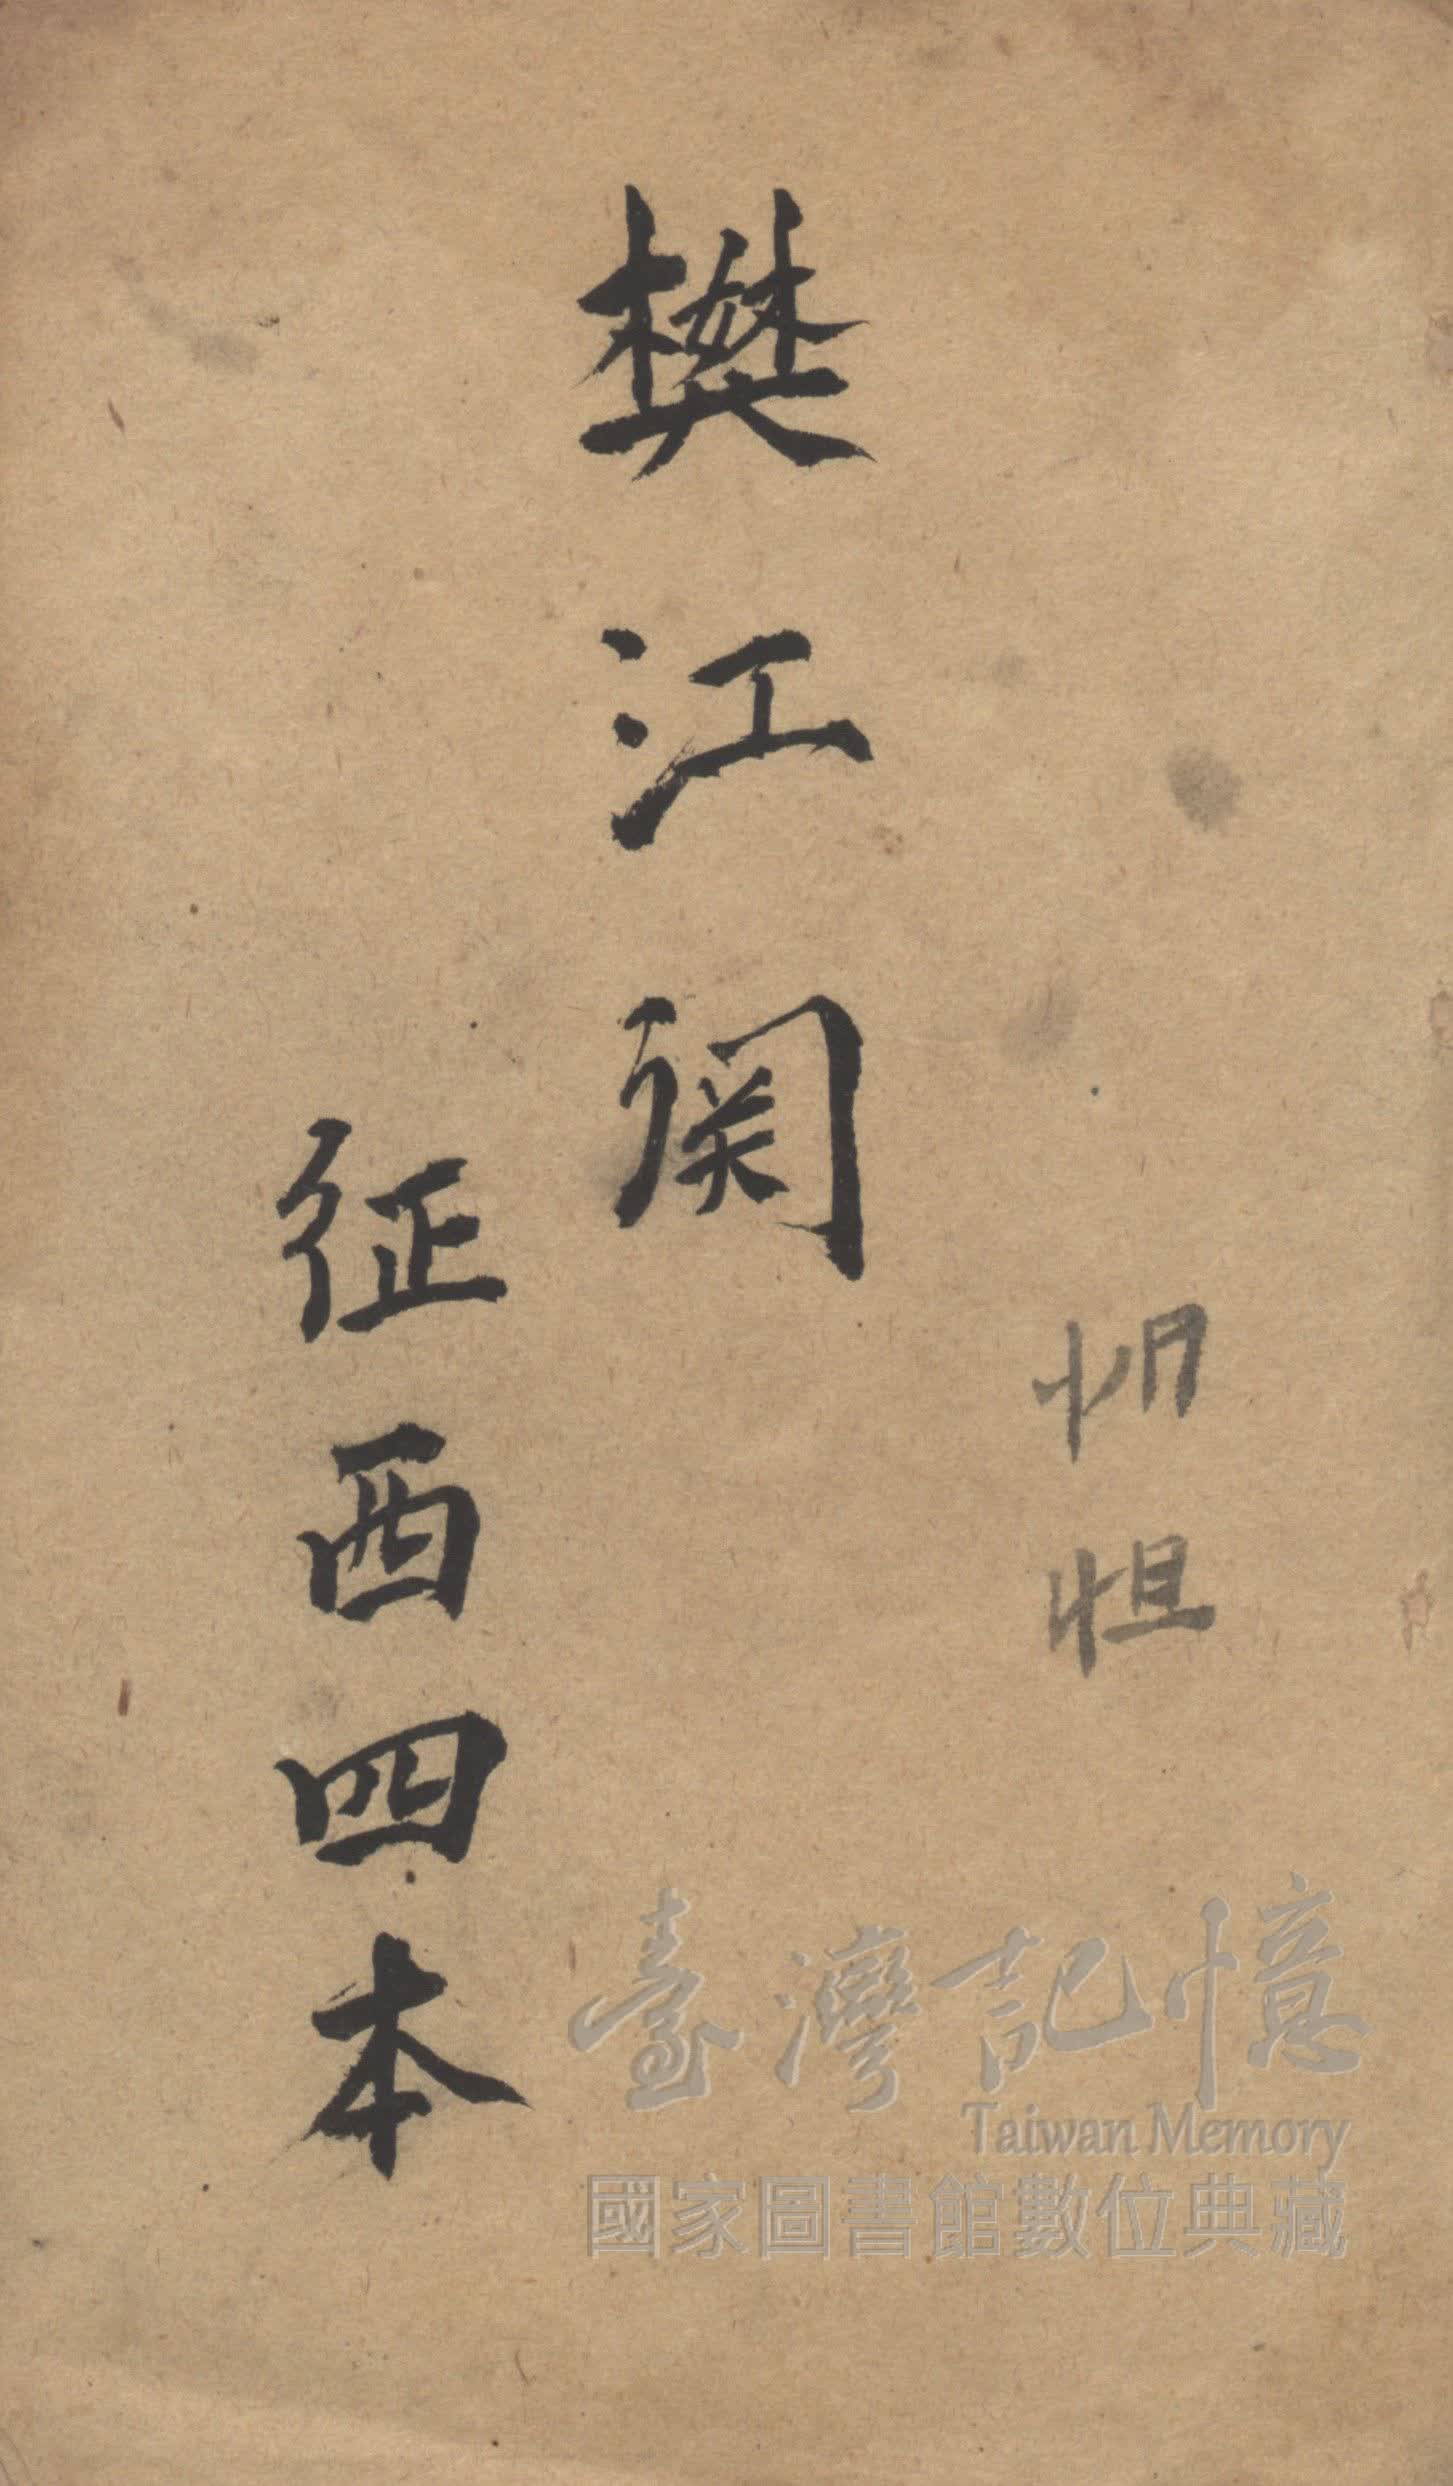 樊江関
征西四本
臺灣記憶
Taiwan Memory
國家圖書館數位典藏